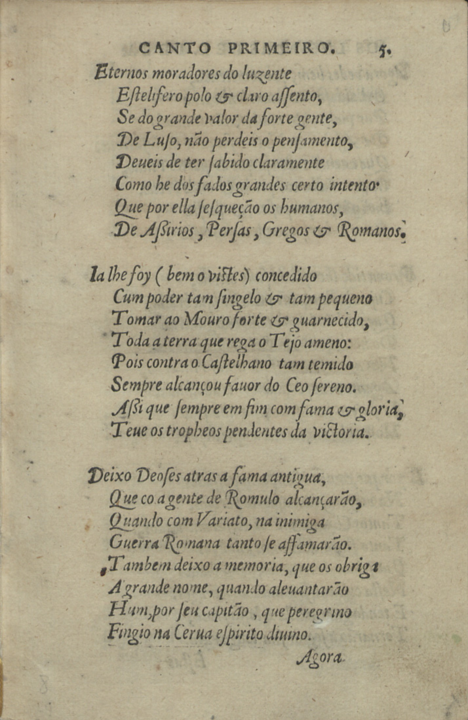 CANTO PRIMEIRO. 5.
Eternos moradores do luzente
Eſteliferopolo & claro aſſento,
Se do grande valor da forte gente,
De Luſo, não perdeis o penſamento,
Deueis de ter ſabido claramente
Como he dos fados grandes certo intento
Que por ella ſeſqueção os humanos,
De Aſsirios, Perſas, Gregos & Romanos.
Ia lhe foy (bem o viſtes) concedido
Cum poder tam ſingelo & tam pequeno
Tomar ao Mouro forte & guarnecido,
Toda a terra que rega o Tejo ameno:
Pois contra o Caſtelhano tam temido
Sempre alcançou fauor do Ceo ſereno.
Aſsi que ſempre em fim com fama & gloria,
Teue os tropheos pendentes da victoria.
Deixo Deoſes atras a fama antigua,
Que co a gente de Romulo alcançarão,
Quando com Variato, na inimiga
Guerra Romana tanto ſe affamarão.
Tambem deixo a memoria, que os obriga
A grande nome, quando aleuantarão
Hum, por ſeu capitão, que peregrino
Fingio na Cerua eſpirito diuino.
Agora